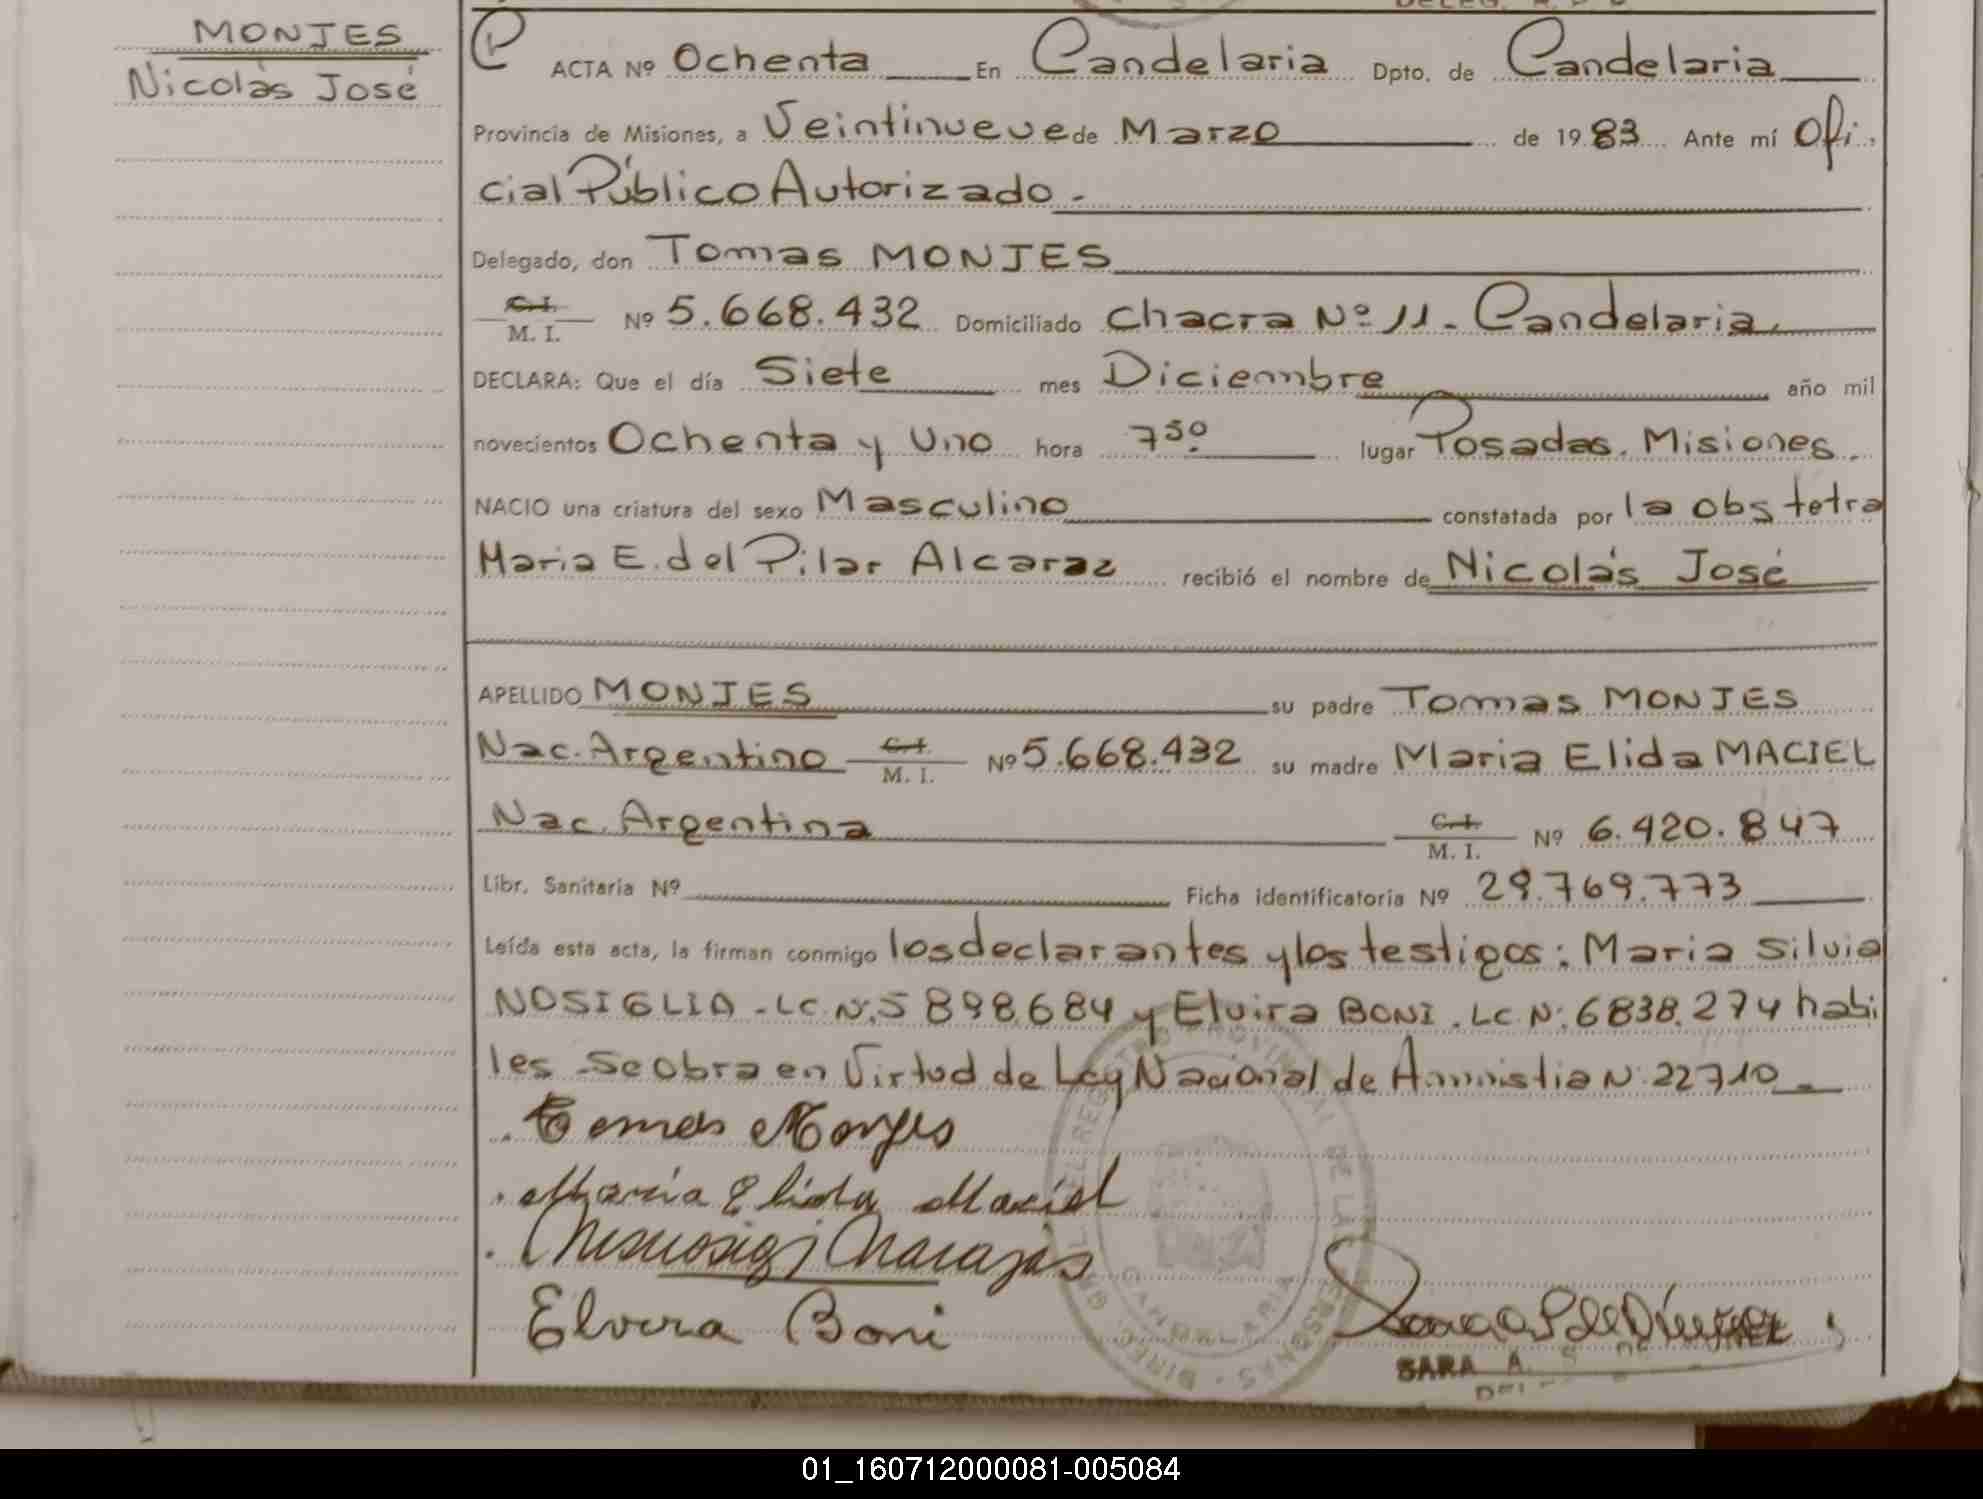 MONJES
Nicolás José
ACTA Nº Ochenta En Candelaria Dpto. de Candelaria
Provincia de Misiones, a Veintinueve de Marzo de 1983 Ante mí Ofi
cial Público Autorizado.
Delegado, don Tomas MONJES
C.I. M. I. Nº 5.668.432 Domiciliado Chacra Nº 11. Candelaria.
DECLARA: Que el día Siete mes Diciembre año mil
novecientos Ochenta y Uno hora 7 50 lugar Posadas. Misiones.
NACIO una criatura del sexo Masculino constatada por la obstetra
Maria E. del Pilar Alcaraz recibió el nombre de Nicolás José
APELLIDO MONJES su padre Tomas MONJES
Nac. Argentino C.I. M. I. Nº 5.668.432 su madre Maria Elida MACIEL
Nac. Argentina C.I. M. I. Nº 6.420.847
Libr. Sanitaria Nº Ficha identificatoria Nº 29.769.773
Leída esta acta, la firman conmigo los declarantes y los testigos: Maria Silvia
NOSIGLIA - LC.N.5 898.684 y Elvira BONI. LC.N: 6838.274 habi
les - se obra en Virtud de Ley Nacional de Amnistia N. 22710
Tomas Monjes
Maria Elida Maciel
Elvira Boni
REGISTRO PROVINCIAL DE LAS PERSONAS
CANDELARIA
SARA A. S.
01_160712000081-005084